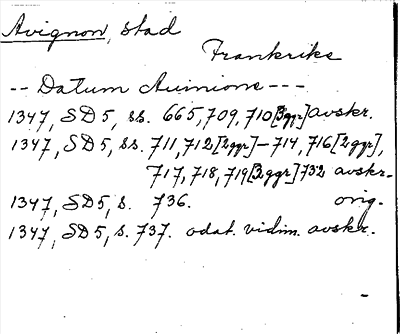 Avignon, stad
Frankrike
-- Datum Avinione ---
1347, SD 5, ss. 665, 709, 710 [3 ggr] avskr.
1347, SD 5, ss. 711, 712 [2 ggr] - 714, 716 [2 ggr],
717, 718, 719 [2 ggr] 732 avskr.
1347, SD 5, s. 736. orig.
1347, SD 5, s. 737. odat. vidim. avskr.